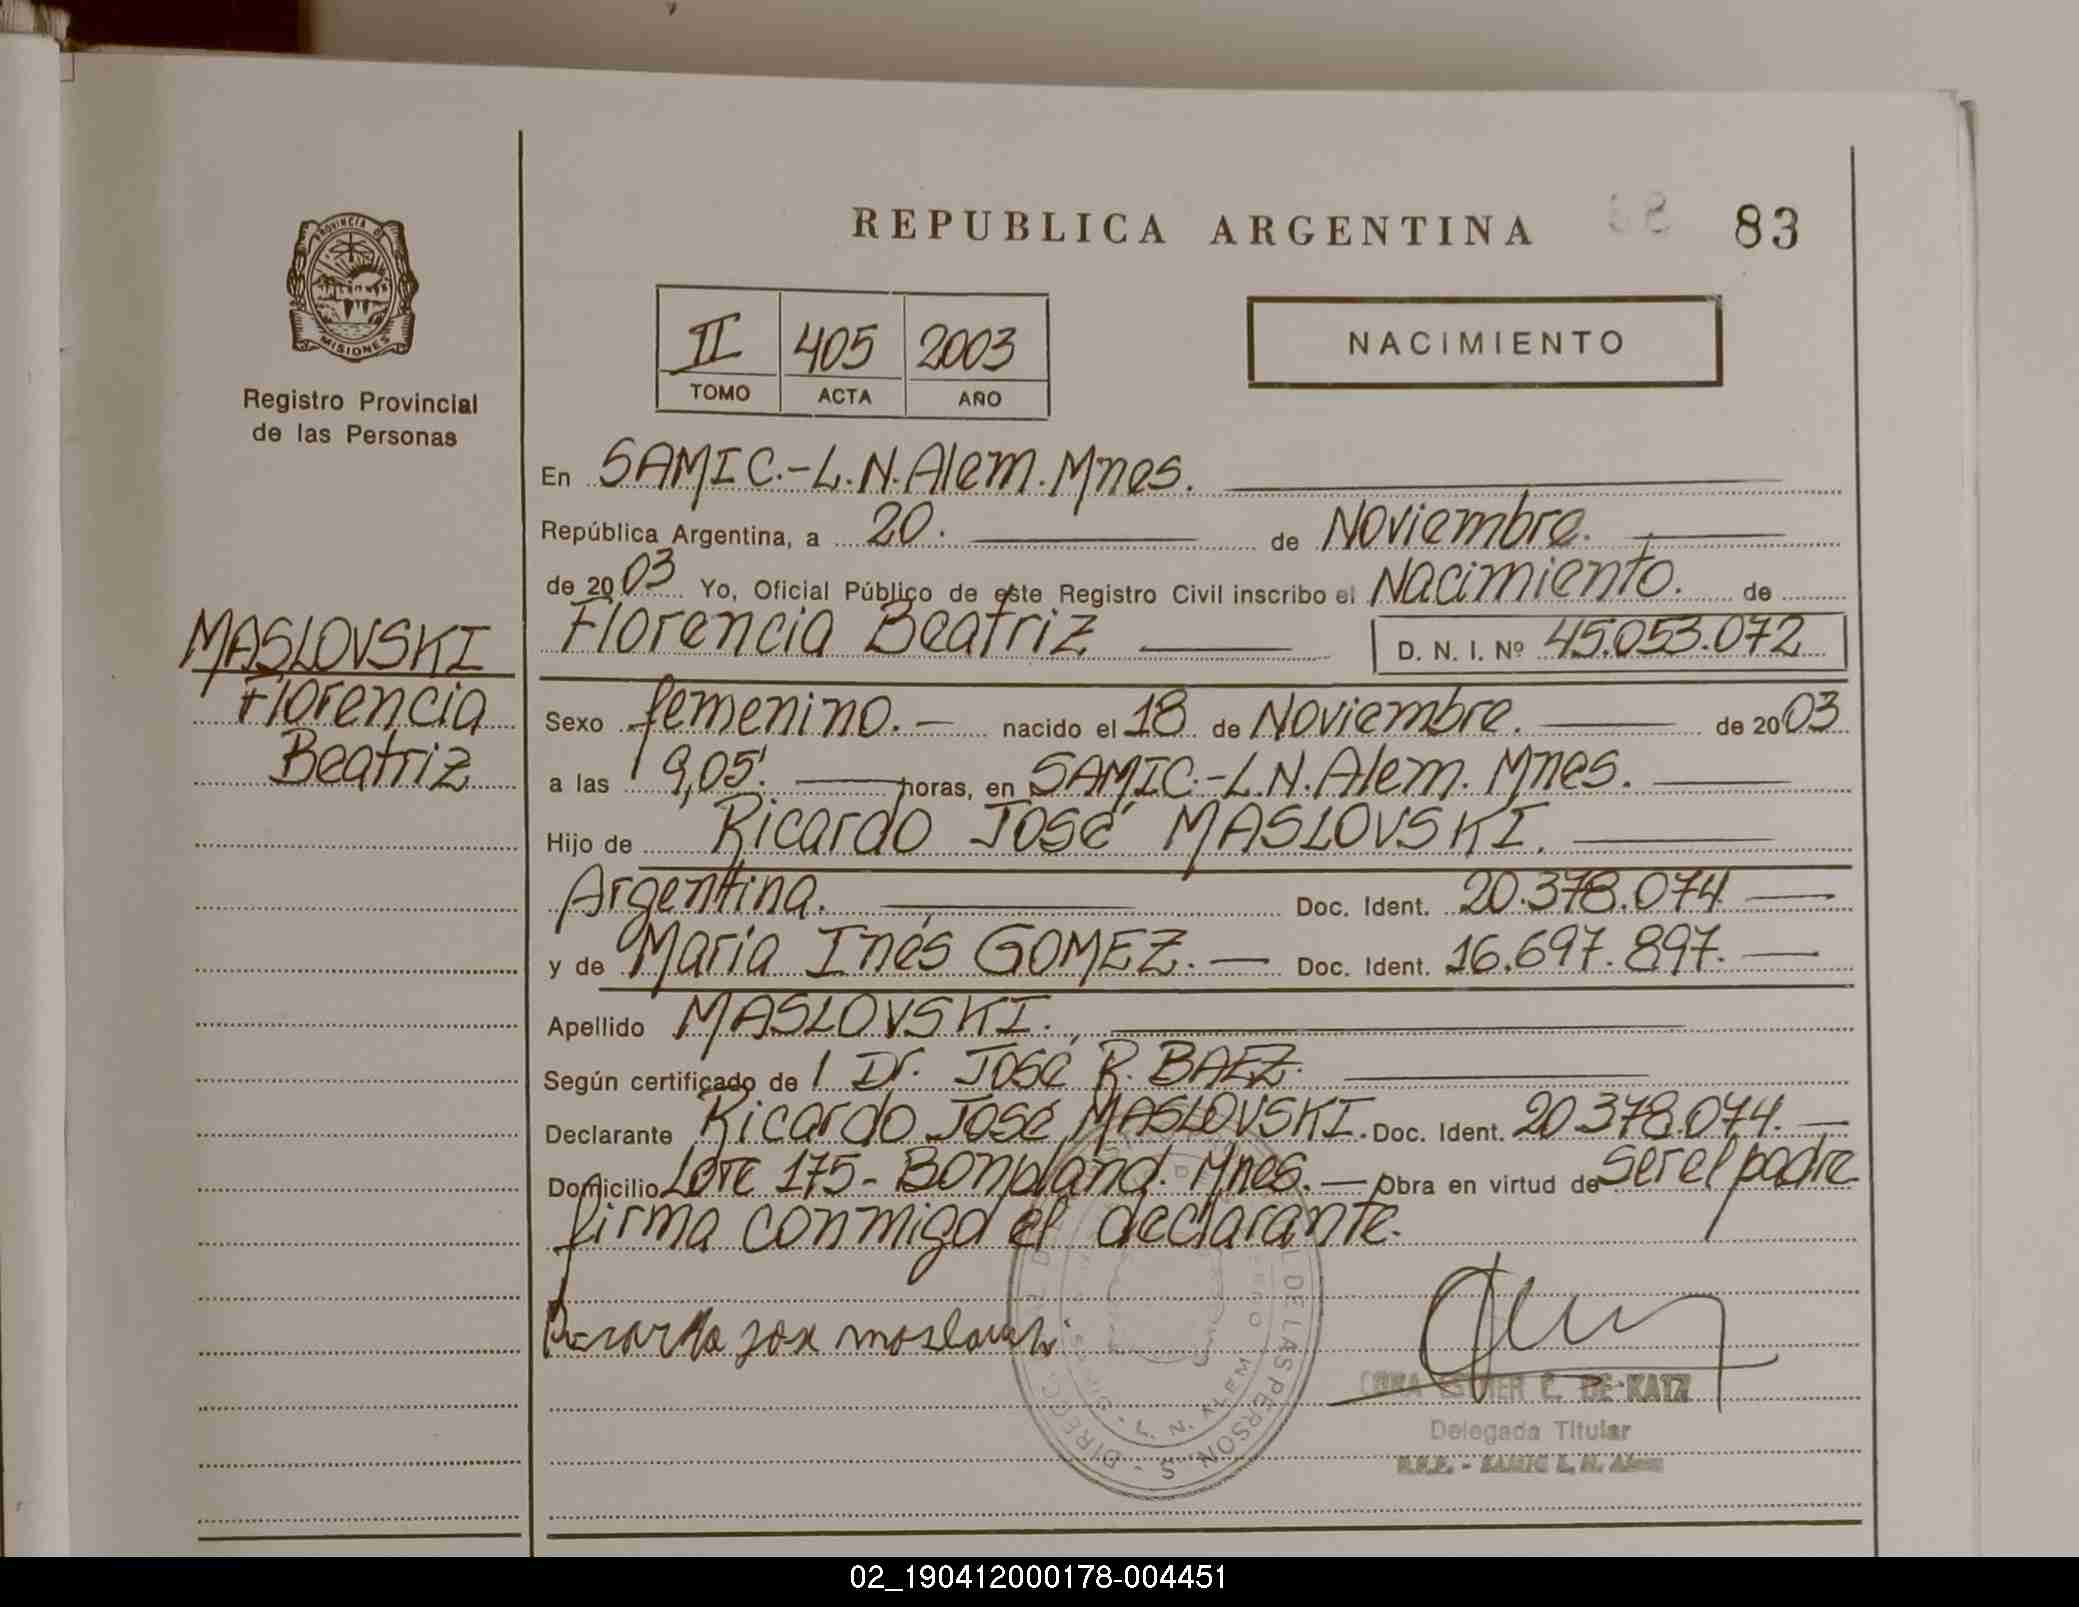 REPUBLICA ARGENTINA 83
PROVINCIA DE
MISIONES
Registro Provincial
de las Personas
II 405 2003
TOMO ACTA AÑO
NACIMIENTO
En SAMIC.-L.N.Alem.Mnes.
República Argentina, a 20. de Noviembre.
de 2003 Yo, Oficial Público de este Registro Civil inscribo el Nacimiento. de
Florencia Beatriz D. N. I. Nº 45.053.072
MASLOVSKI
Florencia
Beatriz
Sexo femenino.- nacido el 18 de Noviembre. de 2003
a las 9,05'. horas, en SAMIC.-L.N.Alem. Mnes.
Hijo de Ricardo José MASLOVSKI.
Argentina. Doc. Ident. 20.378.074
y de María Inés GOMEZ.- Doc. Ident. 16.697.897.
Apellido MASLOVSKI.
Según certificado de l Dr. José R. BAEZ.
Declarante Ricardo José MASLOVSKI. Doc. Ident. 20.378.074.
Domicilio Lote 175- Bonpland. Mnes.- Obra en virtud de ser el padre
firma conmigo el declarante.
DE LAS PERSONAS - DIREC.
L. N. ALEM
DE KATZ
Delegada Titular
R.P.P. - SAMIC L. N. Alem
02_190412000178-004451